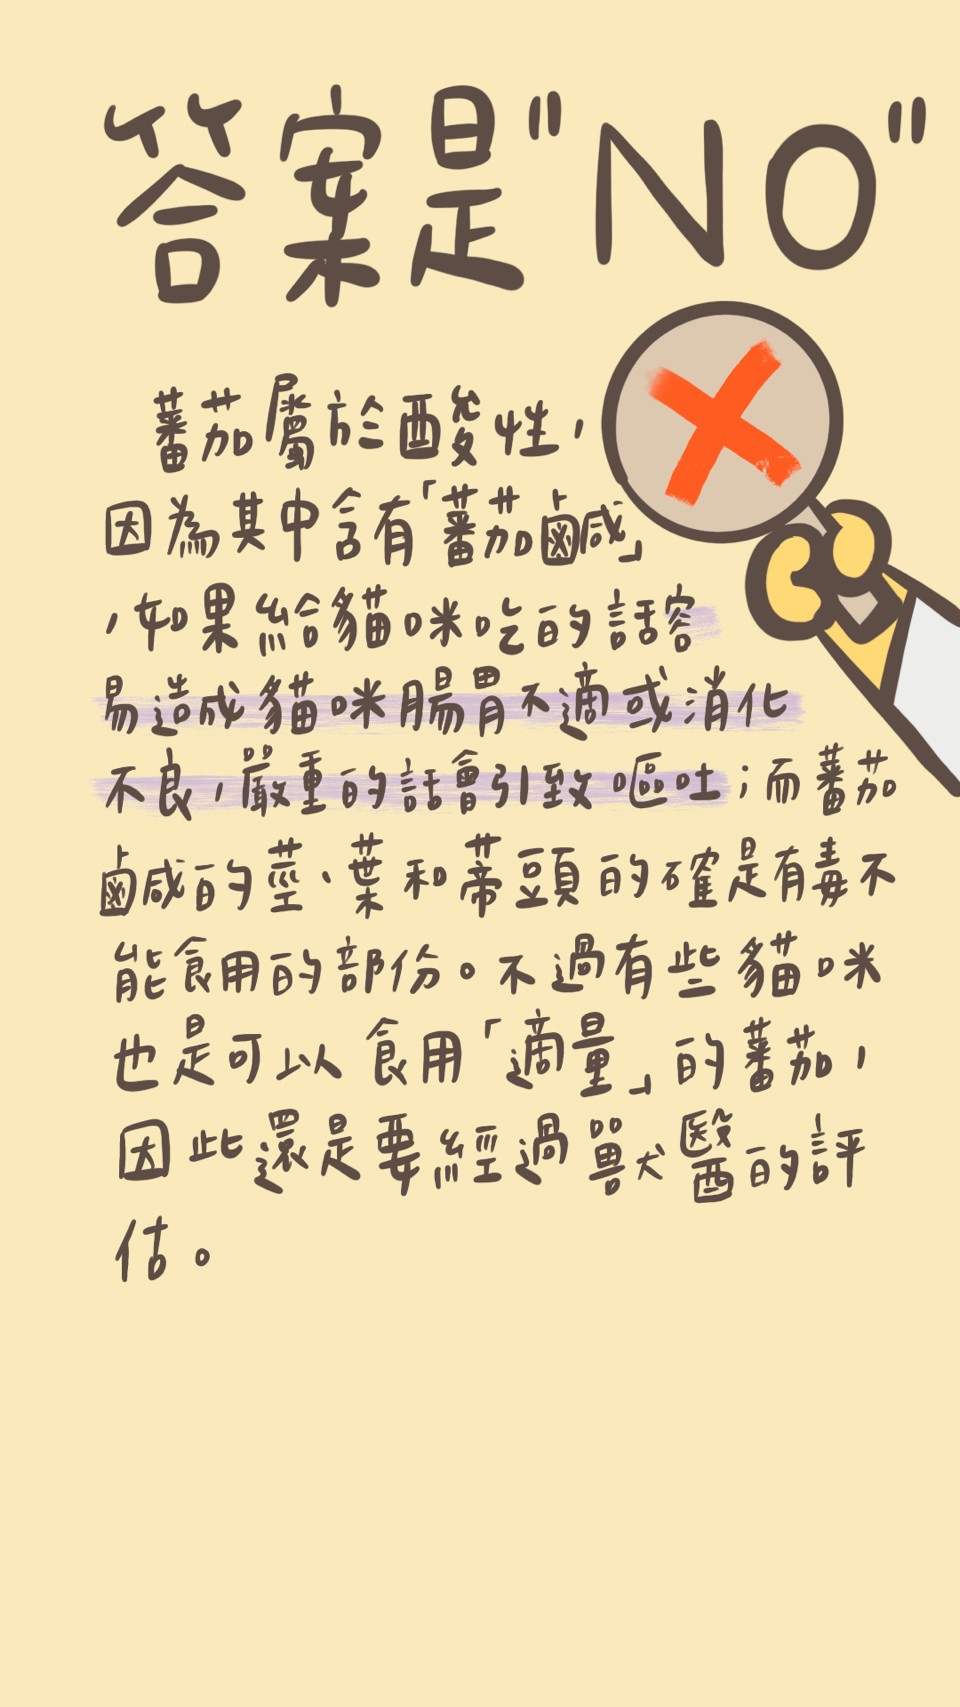 答案是"NO"
蕃茄屬於酸性,
因為其中含有「蕃茄鹵咸」
,如果給貓咪吃的話容
易造成貓咪腸胃不適或消化
不良,嚴重的話會引致嘔吐;而蕃茄
鹵咸的莖、葉和蒂頭的確是有毒不
能食用的部份。不過有些貓咪
也是可以食用「適量」的蕃茄,
因此還是要經過獸醫的評
估。